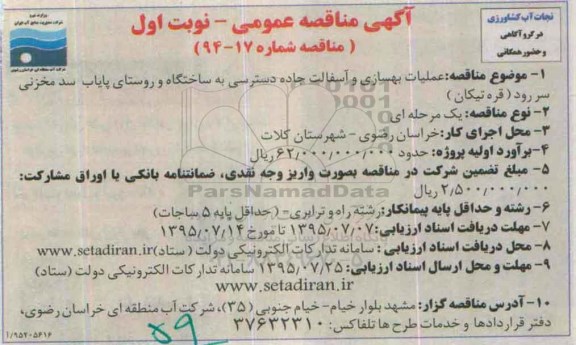 نجات آب کشاورزی
در گرو آگاهی
و حضور همگانی
آگهی مناقصه عمومی - نوبت اول
( مناقصه شماره ۱۷-۹۴)
۱- موضوع مناقصه: عملیات بهسازی و آسفالت جاده دسترسی به ساختگاه و روستای پایاب سد مخزنی
سررود ( قره تیکان )
۲- نوع مناقصه: یک مرحله ای
۳- محل اجرای کار: خراسان رضوی - شهرستان کلات
۴- برآورد اولیه پروژه: حدود ۶۲,۰۰۰,۰۰۰,۰۰۰ ریال
۵- مبلغ تضمین شرکت در مناقصه بصورت واریز وجه نقدی، ضمانتنامه بانکی یا اوراق مشارکت:
۲,۵۰۰,۰۰۰,۰۰۰ ریال
۶- رشته و حداقل پایه پیمانکار: رشته راه و ترابری - ( حداقل پایه ۵ ساجات)
۷- مهلت دریافت اسناد ارزیابی: ۱۳۹۵/۰۷/۰۷ تا مورخ ۱۳۹۵/۰۷/۱۴
۸- محل دریافت اسناد ارزیابی : سامانه تدارکات الکترونیکی دولت (ستاد) www.setadiran.ir
۹- مهلت و محل ارسال اسناد ارزیابی: ۱۳۹۵/۰۷/۲۵ سامانه تدارکات الکترونیکی دولت (ستاد)
www.setadiran.ir
۱۰- آدرس مناقصه گزار: مشهد بلوار خیام- خیام جنوبی (۳۵)، شرکت آب منطقه ای خراسان رضوی،
دفتر قراردادها و خدمات طرح ها تلفاکس: ۳۷۶۳۲۳۱۰
۵۹
۹۵۲۰۵۶۱۶/آ
ParsNamadData